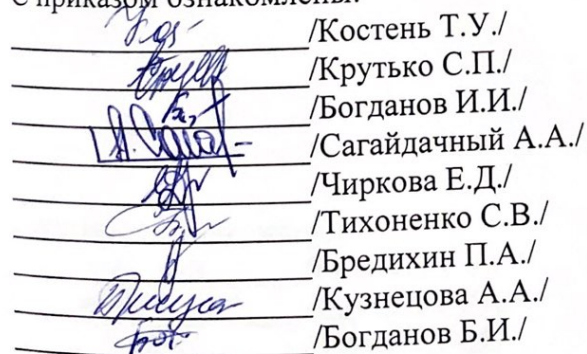 С приказом ознакомлены:
/Костень Т.У./
/Крутько С.П./
/Богданов И.И./
/Сагайдачный А.А./
/Чиркова Е.Д./
/Тихоненко С.В./
/Бредихин П.А./
/Кузнецова А.А./
/Богданов Б.И./